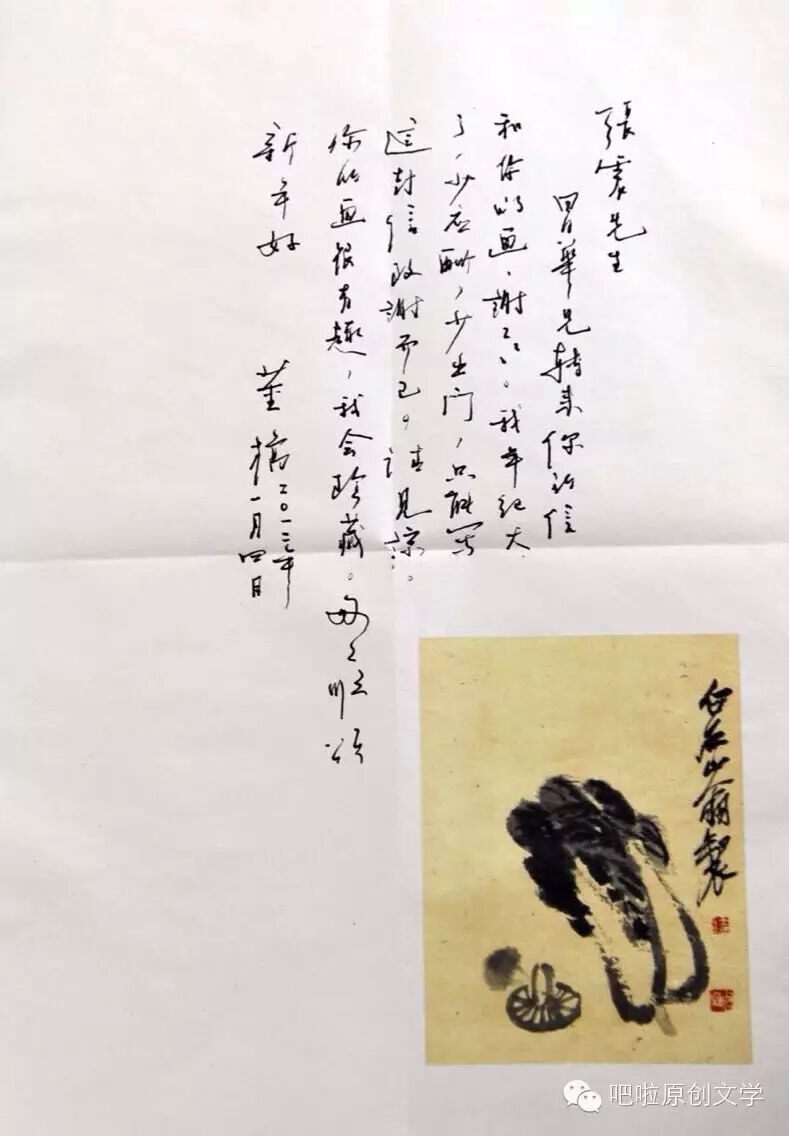 張震先生
胃華兄轉來你的信
和你的画，謝謝。我年紀大
了，少应酬，少出門，只能寫
這封信致謝而已，請見諒。
你的画很有趣，我会珍藏。匆匆順頌
新年好
董橋
二〇一三年
一月四日
白石山翁製
吧啦原创文学